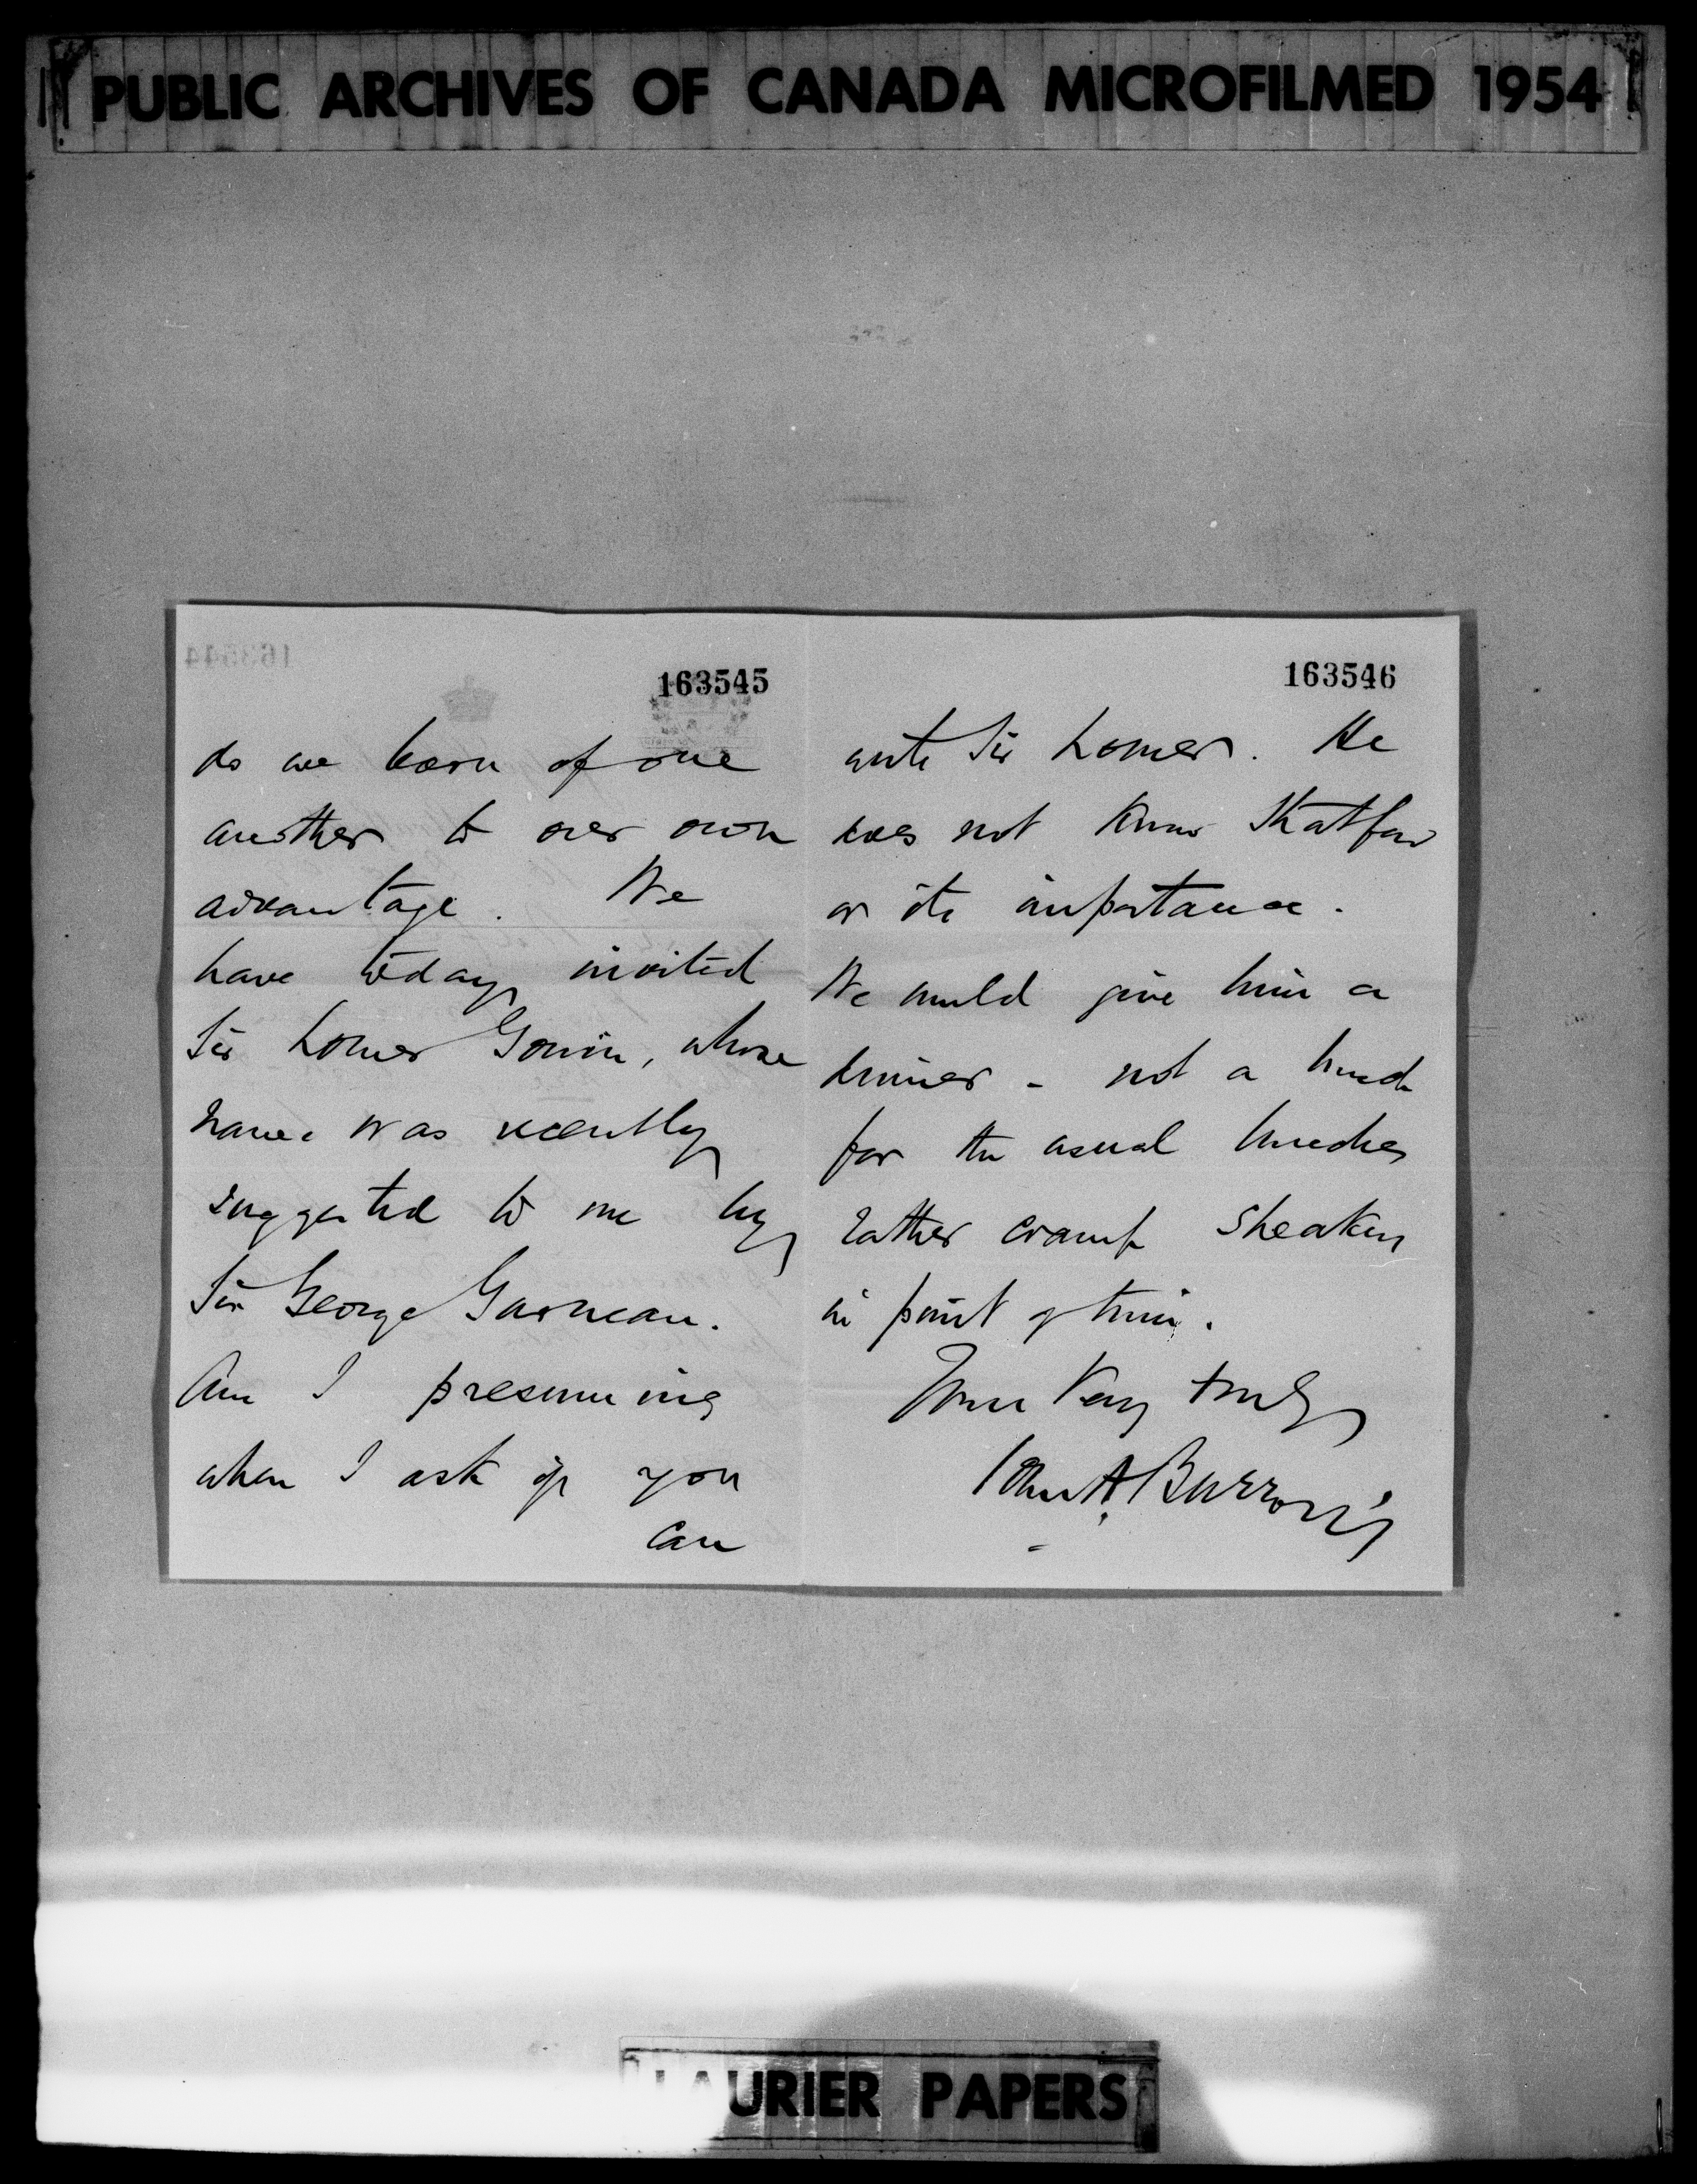 PUBLIC ARCHIVES OF CANADA MICROFILMED 1954
163544
163545
do we learn of one
another to our own
advantage. We
have today invited
Sir Lomer Gouin, whose
name was recently
suggested to me by
Sir George Garneau.
Am I presuming
when I ask if you
can
163546
write Sir Lomer. He
does not know Stratford
or its importance.
We would give him a
dinner - not a lunch
for the usual lunches
rather cramp speakers
in point of time.
Yours Very truly
A. Burrows
LAURIER PAPERS